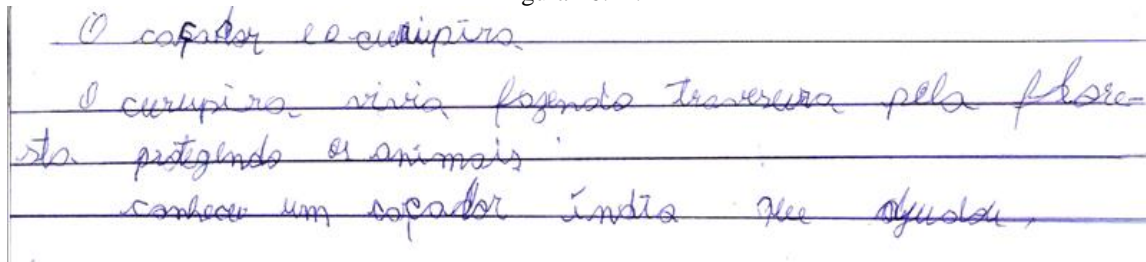 O caçador e o curupira
O curupira vivia fazendo traversura pela flore-
sta protegendo os animais
conheceu um caçador índio que ajudou,